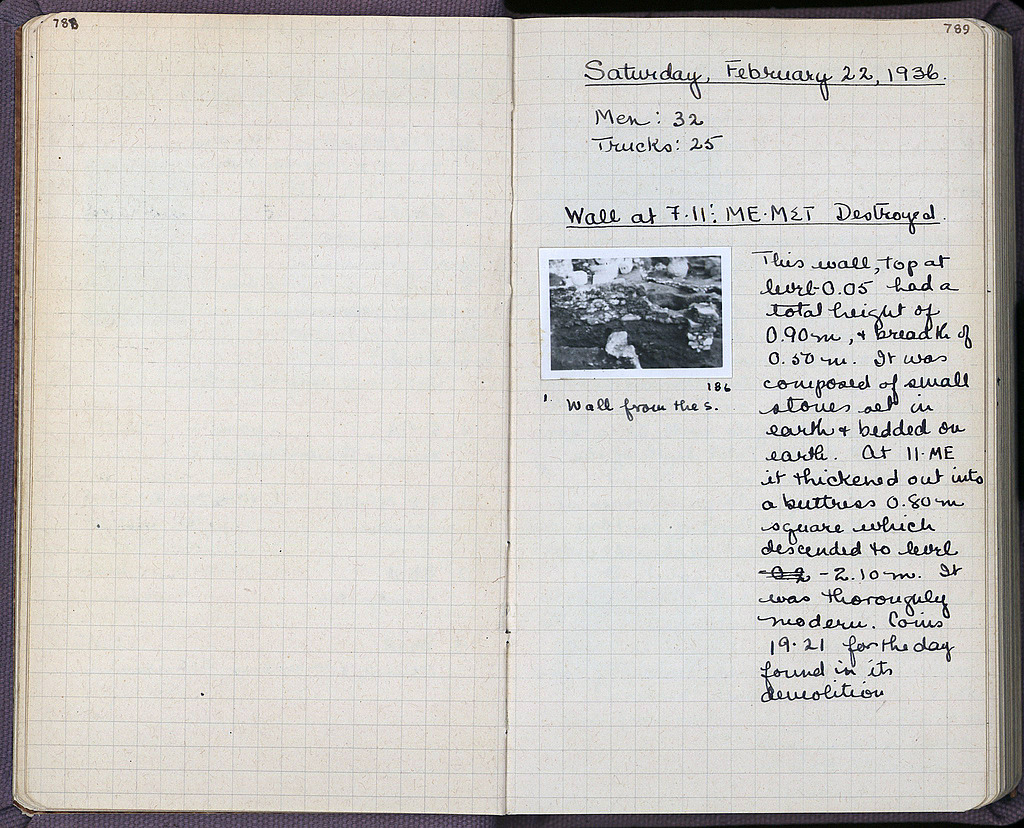 788
789
Saturday, February 22, 1936.
Men: 32
Trucks: 25
Wall at 7·11: ME·MΣT Destroyed.
This wall, top at
level -0.05 had a
total height of
0.90 m, & breadth of
0.50 m. It was
composed of small
stones set in
earth & bedded on
earth. At 11·ME
it thickened out into
a buttress 0.80 m
square which
descended to level
-2.10 m. It
was thoroughly
modern. Coins
19·21 for the day
found in its
demolition
186
Wall from the S.